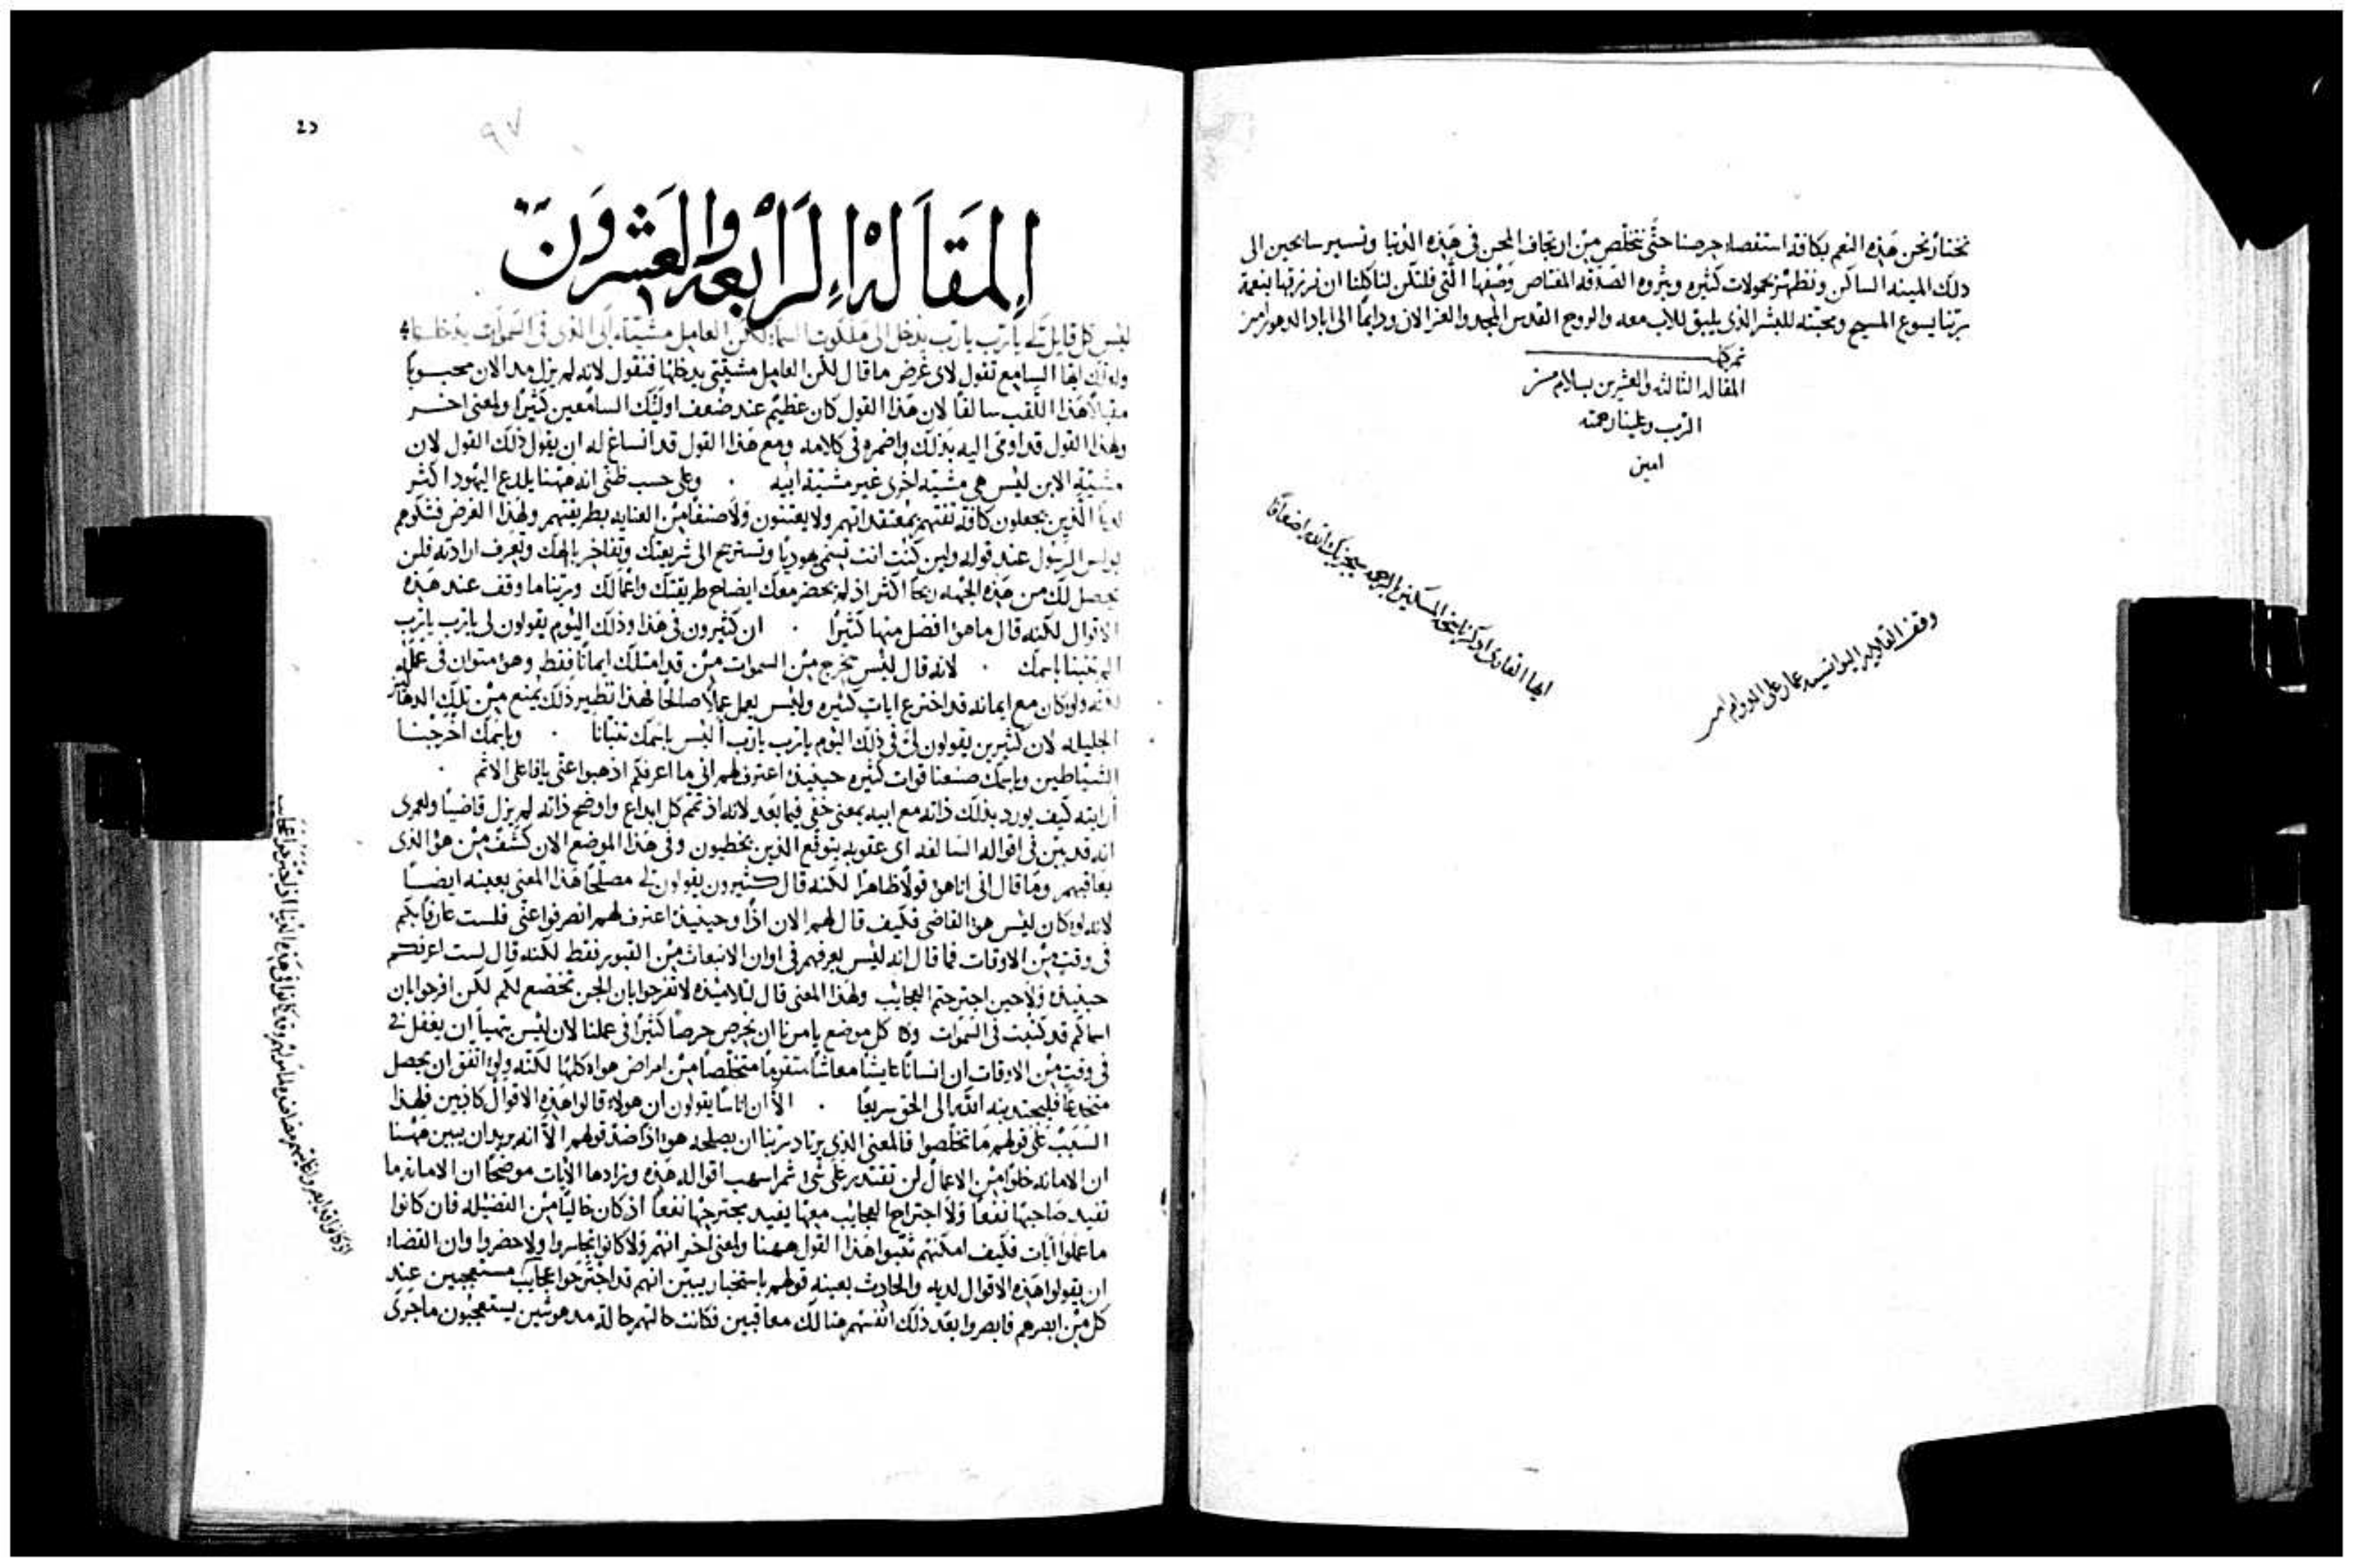 نختار نحن هذه النعم بكافة استقصاء حرصنا حتى نتخلص من ارتجاف المحن في هذه الدنيا ونسير سابحين الى
ذلك المينه الساكن ونظهر بحمولات كثيره وبثروه الصدقه المعتاص وصفها التي فلتكن لنا كلنا ان نرزقها بنعمة
ربنا يسوع المسيح ومحبته للبشر الذي يليق للاب معه والروح القدس المجد والعز الان ودايمًا الى اباد الدهور امين
المقاله الثالثه والعشرين بسلام من
الرب وعلينا رحمته
امين
ايها القارى اذكر المسكين بالرحمه
٩٧
المقالة الرابعة والعشرون
ليس كل قايل لي يا رب يا رب يدخل الى ملكوت السماء لكن العامل مشيئة ابي الذي في السموات يدخلها
ايها السامع تقول لاي غرض ما قال لكن العامل مشيتي يدخلها فنقول لانه لم يزل مد الان محبوبًا
هذا اللقب سالفًا لان هذا القول كان عظيم عند ضعف اوليك السامعين كثيرًا ولمعنى اخر
ولهذا القول قد اومى اليه بذلك واضمره في كلامه ومع هذا القول قد انساغ له ان يقول ذلك القول لان
مشيّة الابن ليس هي مشيّه اخرى غير مشيّة ابيه . وعلى حسب ظني انه ههنا يلدع اليهود اكثر
الذين يجعلون كافة ثقتهم بمعتقداتهم ولا يعتنون ولا صنفًا من العنايه بطريقتهم ولهذا الغرض
بولس الرسول عند قوله ولين كنت انت تسمى يهوديًا وتستريح الى شريعتك وتفاخر بالهك وتعرف ارادته فلن
يحصل لك من هذه الجهه ربحًا اكثر اذ لم يحضر معك ايضاح طريقتك واعمالك وربنا ما وقف عند هذه
الاقوال لكنه قال ما هو افضل منها كثيرًا . ان كثيرون في هذا وذلك اليوم يقولون لي يا رب يا رب
الم تنبنا باسمك . لانه قال ليس يخرج من السموات من قد امتلك ايمانًا فقط وهو متوان في عمله
لكنه ولو كان مع ايمانه قد اخترع ايات كثيره وليس يعمل عملًا صالحًا فهذا نظير ذلك يُمنع من تلك الدهاليز
الجليله لان كثيرين يقولون لي في ذلك اليوم يا رب يا رب اليس باسمك تنبانا . وباسمك اخرجنا
الشياطين وباسمك صنعنا قوات كثيره حينيذٍ اعترف لهم اني ما اعرفكم اذهبوا عني يا فاعلي الاثم .
ارايته كيف يورد بذلك ذاته مع ابيه بمعنى خفي فيما بعد لانه اذ تمم كل ابداع واوضح ذاته لم يزل قاضيًا ولعمري
انه قد بين في اقواله السالفه اي عقوبه يتوقع الذين يخطيون وفي هذا الموضع الان كشف من هو الذي
يعاقبهم وما قال اني انا هو قولًا ظاهرًا لكنه قال كثيرون يقولون لي مصلحًا هذا المعنى بعينه ايضًا
لانه لو كان ليس هو القاضي فكيف قال لهم الان اذًا وحينيذٍ اعترف لهم انصرفوا عني فلست عارفًا بكم
في وقتٍ من الاوقات فما قال انه ليس يعرفهم في اوان الانبعاث من القبور فقط لكنه قال لست اعرفكم
حينيذ ولا حين اجترحتم العجايب ولهذا المعنى قال لتلاميذه لا تفرحوا بان الجن تخضع لكم لكن افرحوا بان
اسماكم قد كتبت في السموات كل موضع يامرنا ان نحرص حرصًا كثيرًا في عملنا لان ليس يتهيا ان يغفل
في وقتٍ من الاوقات ان انسانًا عايشًا معاشًا متخلصًا من امراض هواه كلها لكنه ولو اتفق ان يحصل
منخدعًا الله الى الحق سريعًا . الا ان اناسًا يقولون ان هولاء قالوا هذه الاقوال كاذبين فلهذا
السبب على قولهم ما تخلصوا فالمعنى الذي يرتاد ربنا ان يصلحه هو اذًا ضد قولهم الا انه يريد ان يبين ههنا
ان الامانه خلوًا من الاعمال لن تقتدر على شي ثم اسهب اقواله هذه وزادها الايات موضحًا ان الامانه ما
تفيد صاحبها نفعًا ولا اجتراح العجايب معها يفيد مجترحها نفعًا اذ كان خاليًا من الفضيله فان كانوا
ما عملوا ايات فكيف امكنهم هذا القول ههنا ولمعنى اخر ولا كانوا تجاسروا ولا حضروا وان القضاء
ان يقولوا هذه الاقوال لديه والحادث بعينه قولهم باستخبار يبين انهم قد اجترحوا عجايب مستعجبين عند
كل من ابصرهم فابصروا بعد ذلك انفسهم هنالك معاقبين فكانت حالتهم حالة مدهوشين يستعجبون ما جرى